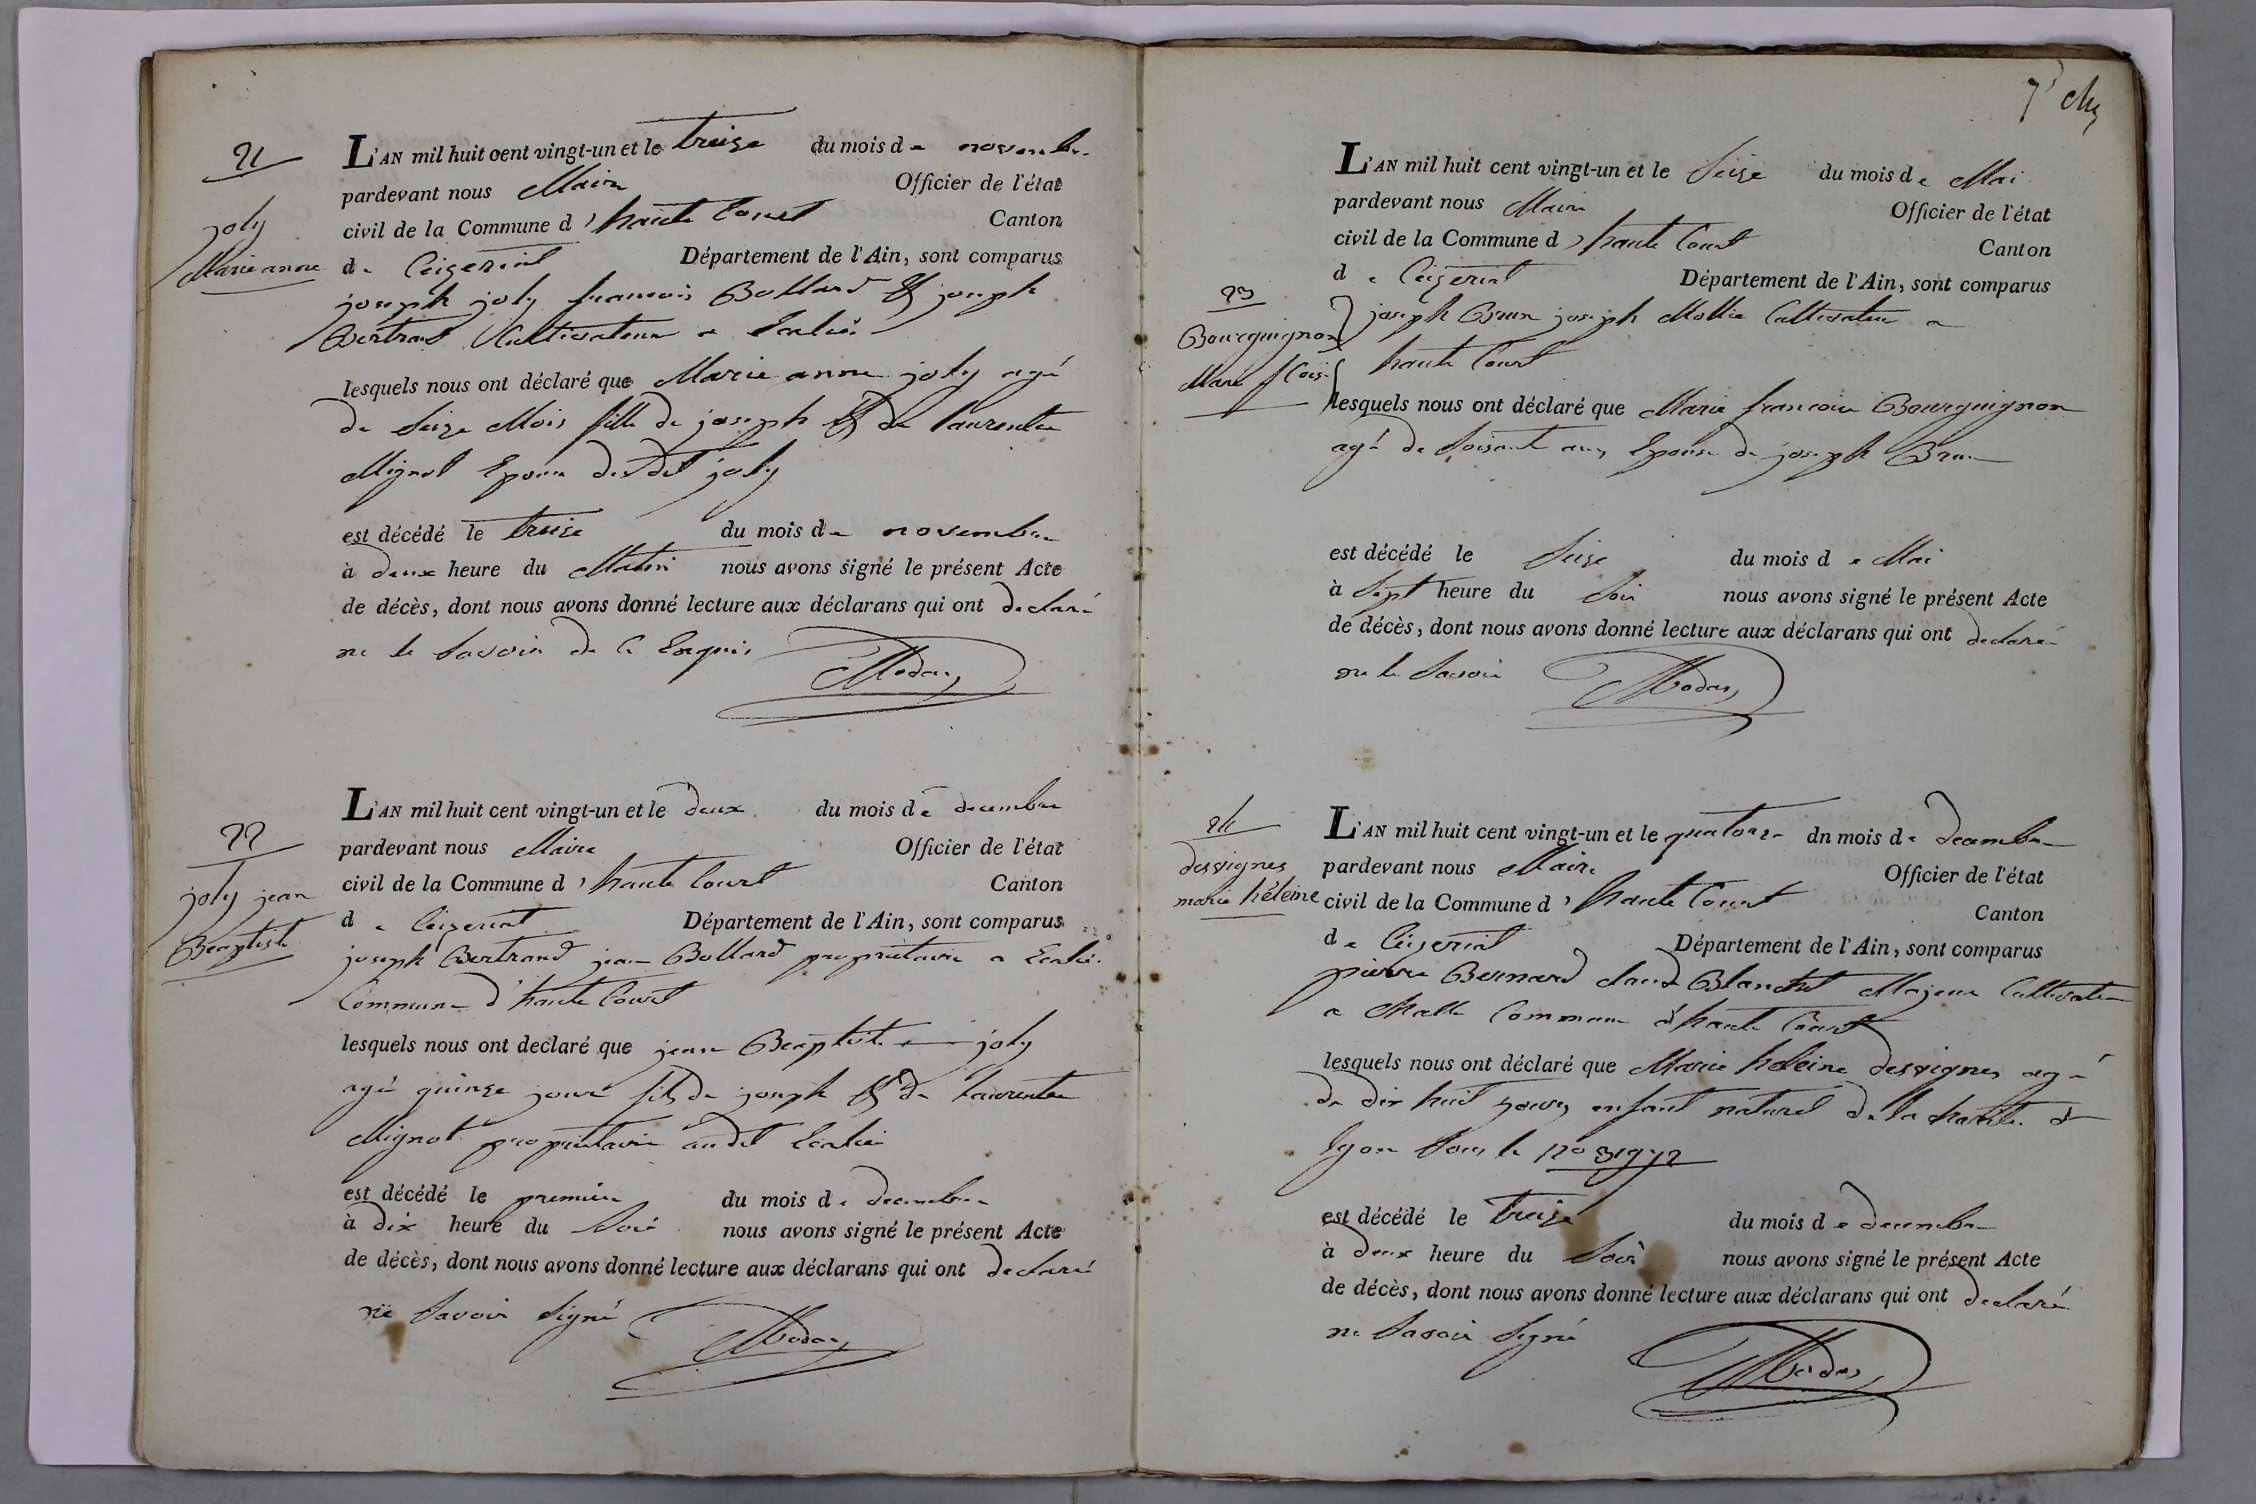 21
joly
Marie anne
L'AN mil huit cent vingt-un et le treize du mois de novembre
pardevant nous Maire Officier de l'état
civil de la Commune d'haute Court Canton
de Ceizeriat Département de l'Ain, sont comparus
joseph joly francois Bollard & joseph
Bertrand Cultivateur a
lesquels nous ont déclaré que Marie anne joly agé
de Seize Mois fille de joseph & de laurentine
Mignot Epoux dudit joly
est décédé le treize du mois de novembre
à deux heure du Matin nous avons signé le présent Acte
de décès, dont nous avons donné lecture aux déclarans qui ont declaré
ne le Savoir de Ce Enquis
22
joly jean
Beaptiste
L'AN mil huit cent vingt-un et le deux du mois de decembre
pardevant nous Maire Officier de l'état
civil de la Commune d'haute Court Canton
de Ceizeriat Département de l'Ain, sont comparus
joseph Bertrand jean Bollard propriétaire a
Commune d'haute Court
lesquels nous ont declaré que jean Beaptiste joly
agé quinze jours fils de joseph & de laurentine
Mignot propriétaire audit
est décédé le premier du mois de decembre
à dix heure du Soir nous avons signé le présent Acte
de décès, dont nous avons donné lecture aux déclarans qui ont declaré
ne Savoir Signé
7
23
Bourguignon
Marie fcoise
L'AN mil huit cent vingt-un et le Seize du mois de Mai
pardevant nous Maire Officier de l'état
civil de la Commune d'haute Court Canton
de Ceizeriat Département de l'Ain, sont comparus
joseph Brun joseph Mollie Cultivateur a
haute Court
lesquels nous ont déclaré que Marie francoise Bourguignon
agé de Soisante ans Epouse de joseph Brun
est décédé le Seize du mois de Mai
à Sept heure du Soir nous avons signé le présent Acte
de décès, dont nous avons donné lecture aux déclarans qui ont declaré
ne le Savoir
24
desvignes
marie héleine
L'AN mil huit cent vingt-un et le quatorze dn mois de decembre
pardevant nous Maire Officier de l'état
civil de la Commune d'haute Court Canton
de Ceizeriat Département de l'Ain, sont comparus
pierre Bernard claude Blanchet Majeur Cultivateur
a Challe Commune d'haute Court
lesquels nous ont déclaré que Marie heleine desvignes agé
de dix huit jours enfant naturel de la charité de
lyon Sous le no 31972
est décédé le treize du mois de decembre
à deux heure du Soir nous avons signé le présent Acte
de décès, dont nous avons donné lecture aux déclarans qui ont declaré
ne Savoir Signé